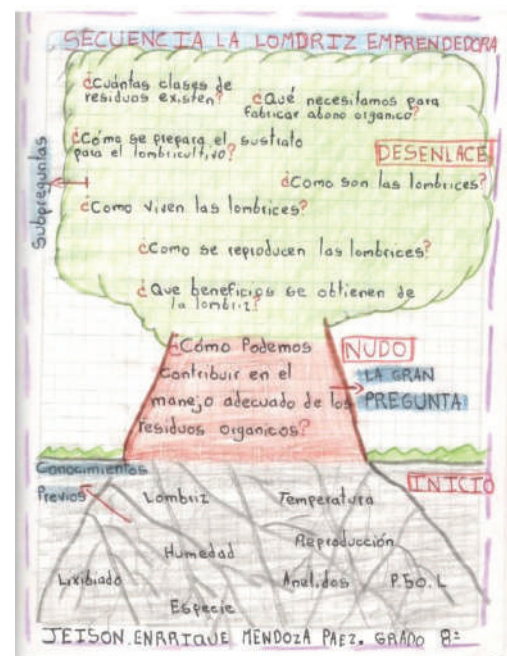 SECUENCIA LA LOMDRIZ EMPRENDEDORA
¿Cuántas clases de
residuos existen?
¿Qué necesitamos para
fabricar abono organico?
¿Cómo se prepara el sustrato
para el lombricultivo?
DESENLACE
Subpreguntas
¿Como son las lombrices?
¿Como viven las lombrices?
¿Como se reproducen las lombrices?
¿Que beneficios se obtienen de
la lombriz?
¿Cómo Podemos
Contribuir en el
manejo adecuado de los
residuos organicos?
NUDO
LA GRAN
PREGUNTA
Conocimientos
Previos
INICIO
Lombriz
Temperatura
Humedad
Reproducción
Lixibiado
Anelidos
P.SO.L
Especie
JEISON.ENRRIQUE MENDOZA PAEZ. GRADO 8º